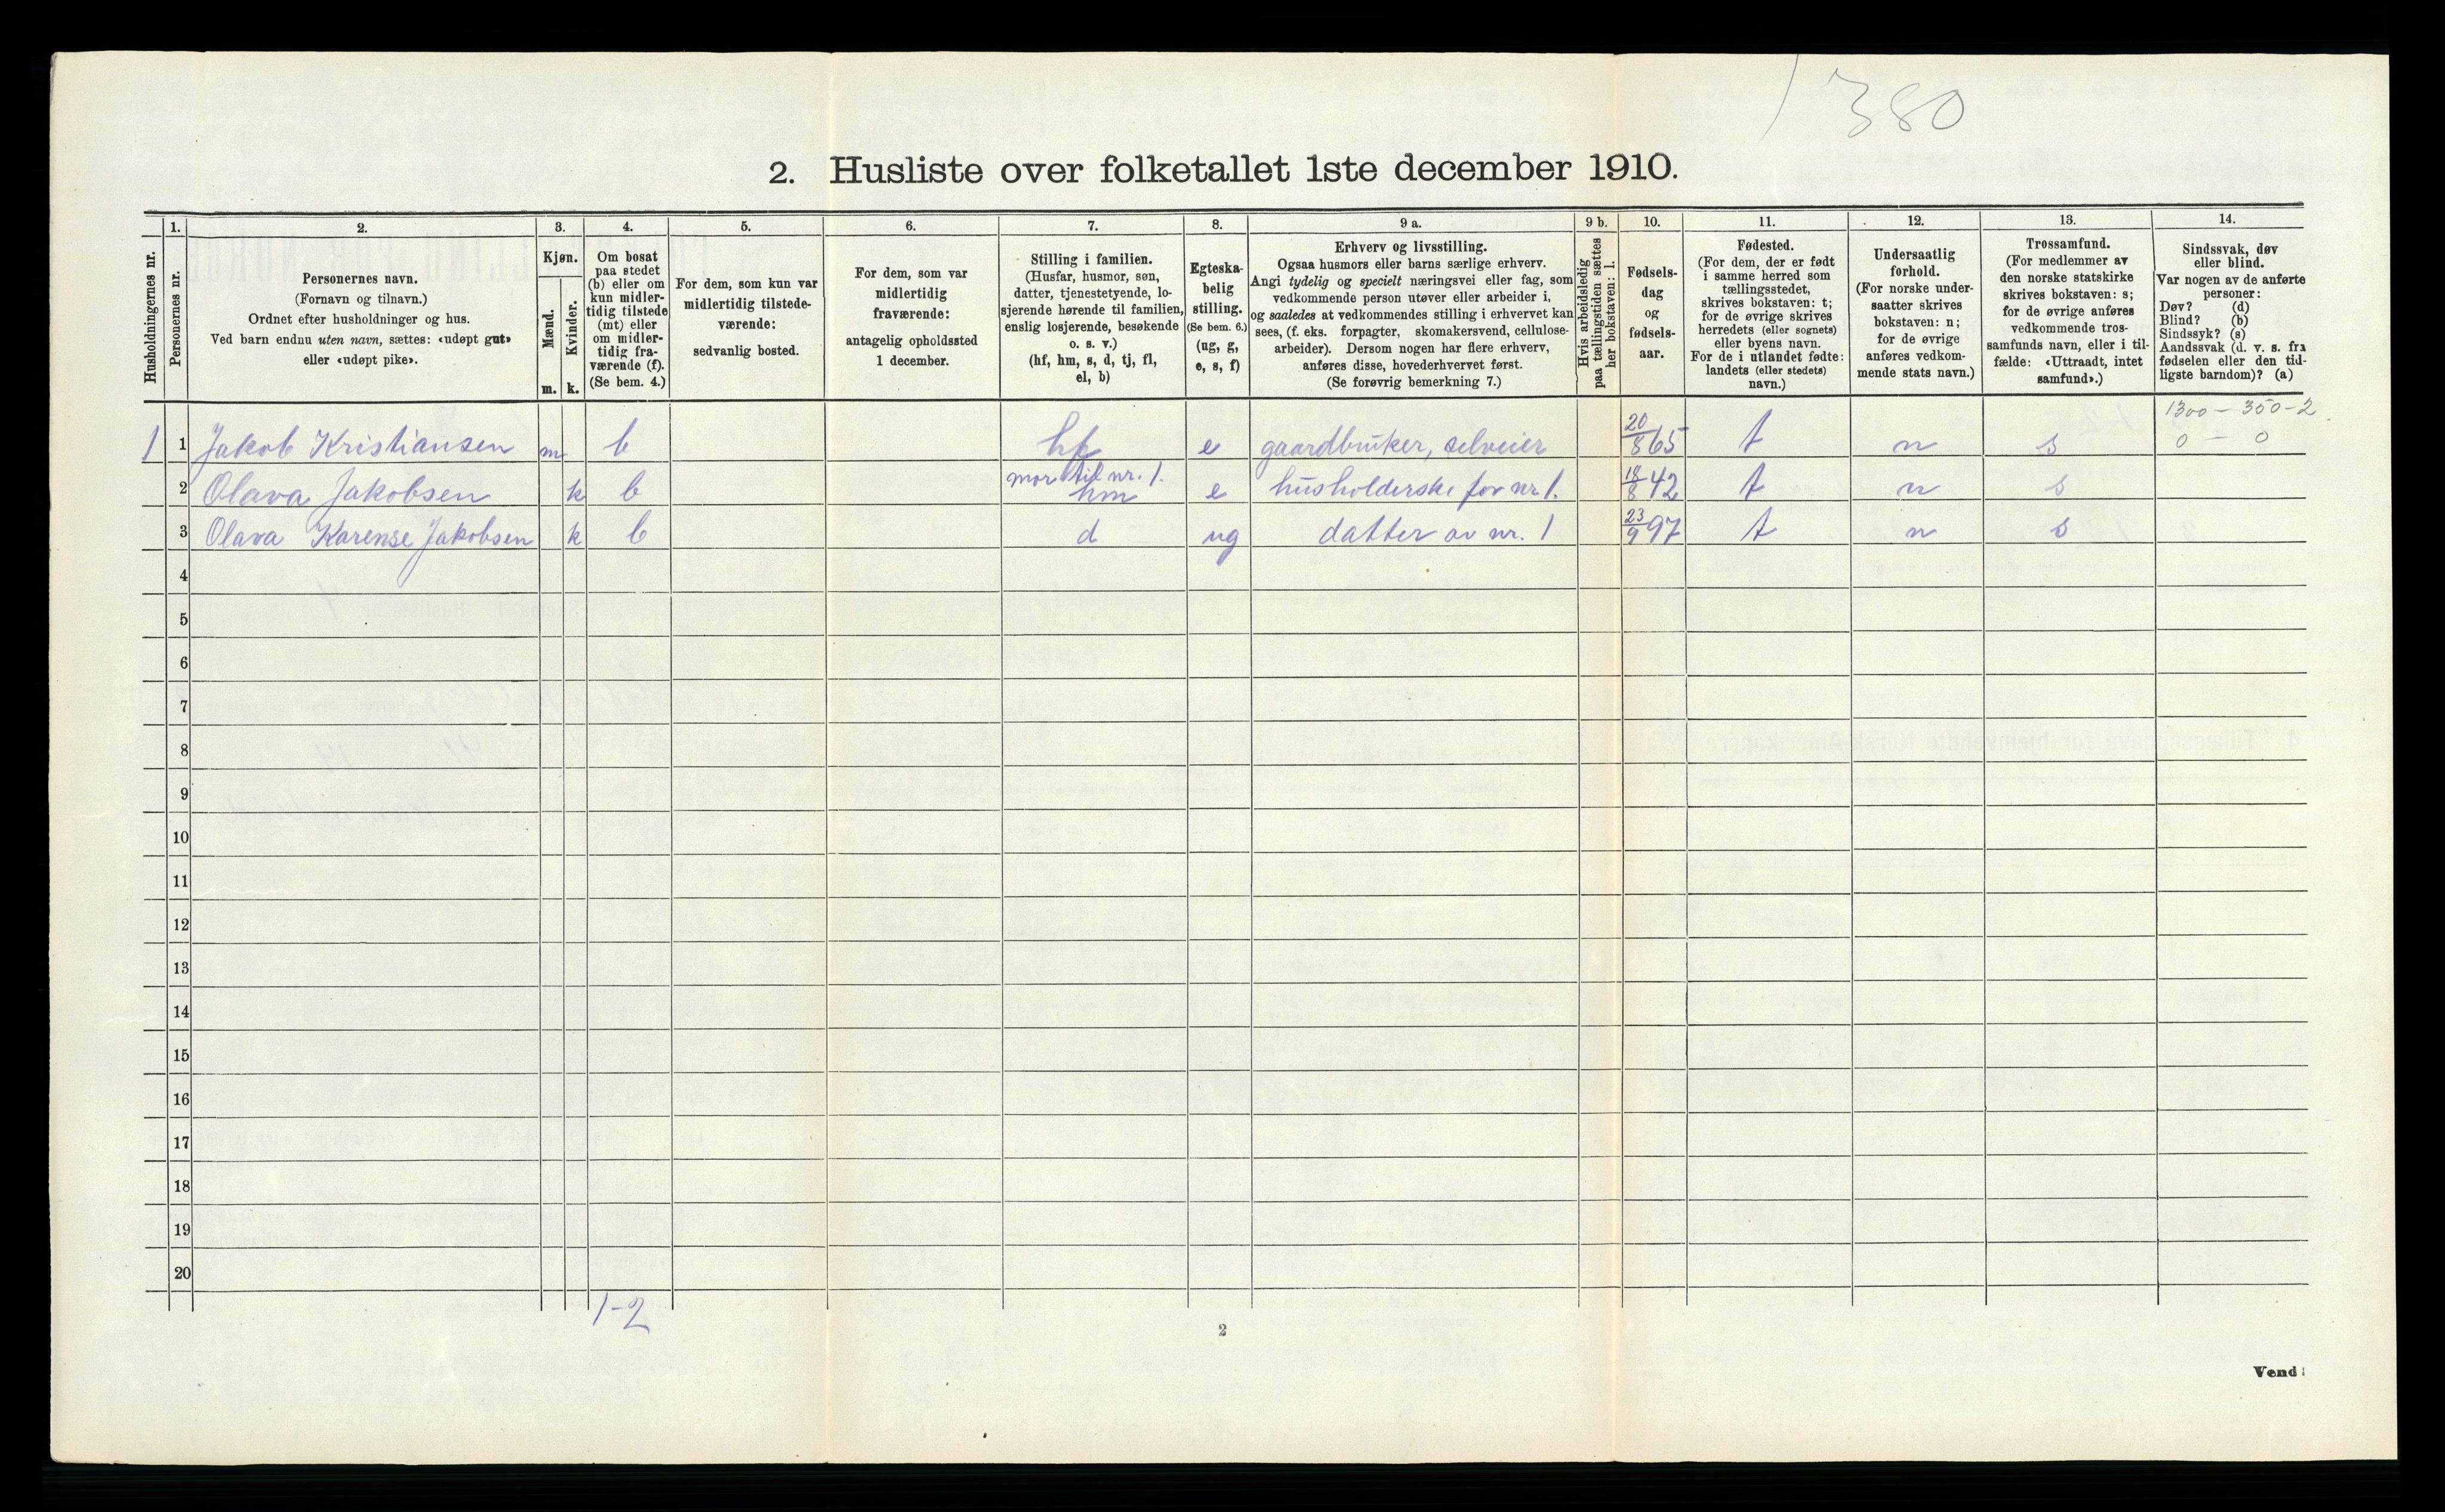 1380
2. Husliste over folketallet 1ste december 1910.
Husholdningernes nr.
1.
Personernes nr.
2.
Personernes navn.
(Fornavn og tilnavn.)
Ordnet efter husholdninger og hus.
Ved barn endnu uten navn, sættes: «udøpt gut»
eller «udøpt pike».
3.
Kjøn.
Mænd.
m.
Kvinder.
k.
4.
Om bosat
paa stedet
(b) eller om
kun midler-
tidig tilstede
(mt) eller
om midler-
tidig fra-
værende (f).
(Se bem. 4.)
5.
For dem, som kun var
midlertidig tilstede-
værende:
sedvanlig bosted.
6.
For dem, som var
midlertidig
fraværende:
antagelig opholdssted
1 december.
7.
Stilling i familien.
(Husfar, husmor, søn,
datter, tjenestetyende, lo-
sjerende hørende til familien,
enslig losjerende, besøkende
o. s. v.)
(hf, hm, s, d, tj, fl,
el, b)
8.
Egteska-
belig
stilling.
(Se bem. 6.)
(ug, g,
e, s, f)
9 a.
Erhverv og livsstilling.
Ogsaa husmors eller barns særlige erhverv.
Angi tydelig og specielt næringsvei eller fag, som
vedkommende person utøver eller arbeider i,
og saaledes at vedkommendes stilling i erhvervet kan
sees, (f. eks. forpagter, skomakersvend, cellulose-
arbeider). Dersom nogen har flere erhverv,
anføres disse, hovederhvervet først.
(Se forøvrig bemerkning 7.)
9 b.
Hvis arbeidsledig
paa tællingstiden sættes
her bokstaven: l.
10.
Fødsels-
dag
og
fødsels-
aar.
11.
Fødested.
(For dem, der er født
i samme herred som
tællingsstedet,
skrives bokstaven: t;
for de øvrige skrives
herredets (eller sognets)
eller byens navn.
For de i utlandet fødte:
landets (eller stedets)
navn.)
12.
Undersaatlig
forhold.
(For norske under-
saatter skrives
bokstaven: n;
for de øvrige
anføres vedkom-
mende stats navn.)
13.
Trossamfund.
(For medlemmer av
den norske statskirke
skrives bokstaven: s;
for de øvrige anføres
vedkommende tros-
samfunds navn, eller i til-
fælde: «Uttraadt, intet
samfund».)
14.
Sindssvak, døv
eller blind.
Var nogen av de anførte
personer:
Døv? (d)
Blind? (b)
Sindssyk? (s)
Aandssvak (d. v. s. fra
fødselen eller den tid-
ligste barndom)? (a)
1300 – 350 – 2
1 1 Jakob Kristiansen m b hf e gaardbruker, selveier 20/8 65 t n s 0 – 0
mor til nr. 1.
2 Olava Jakobsen k b hm e husholderske for nr 1. 18/8 42 t n s
3 Olava Karense Jakobsen k b d ug datter av nr. 1 23/9 97 t n s
4
5
6
7
8
9
10
11
12
13
14
15
16
17
18
19
20
1-2
2
Vend!